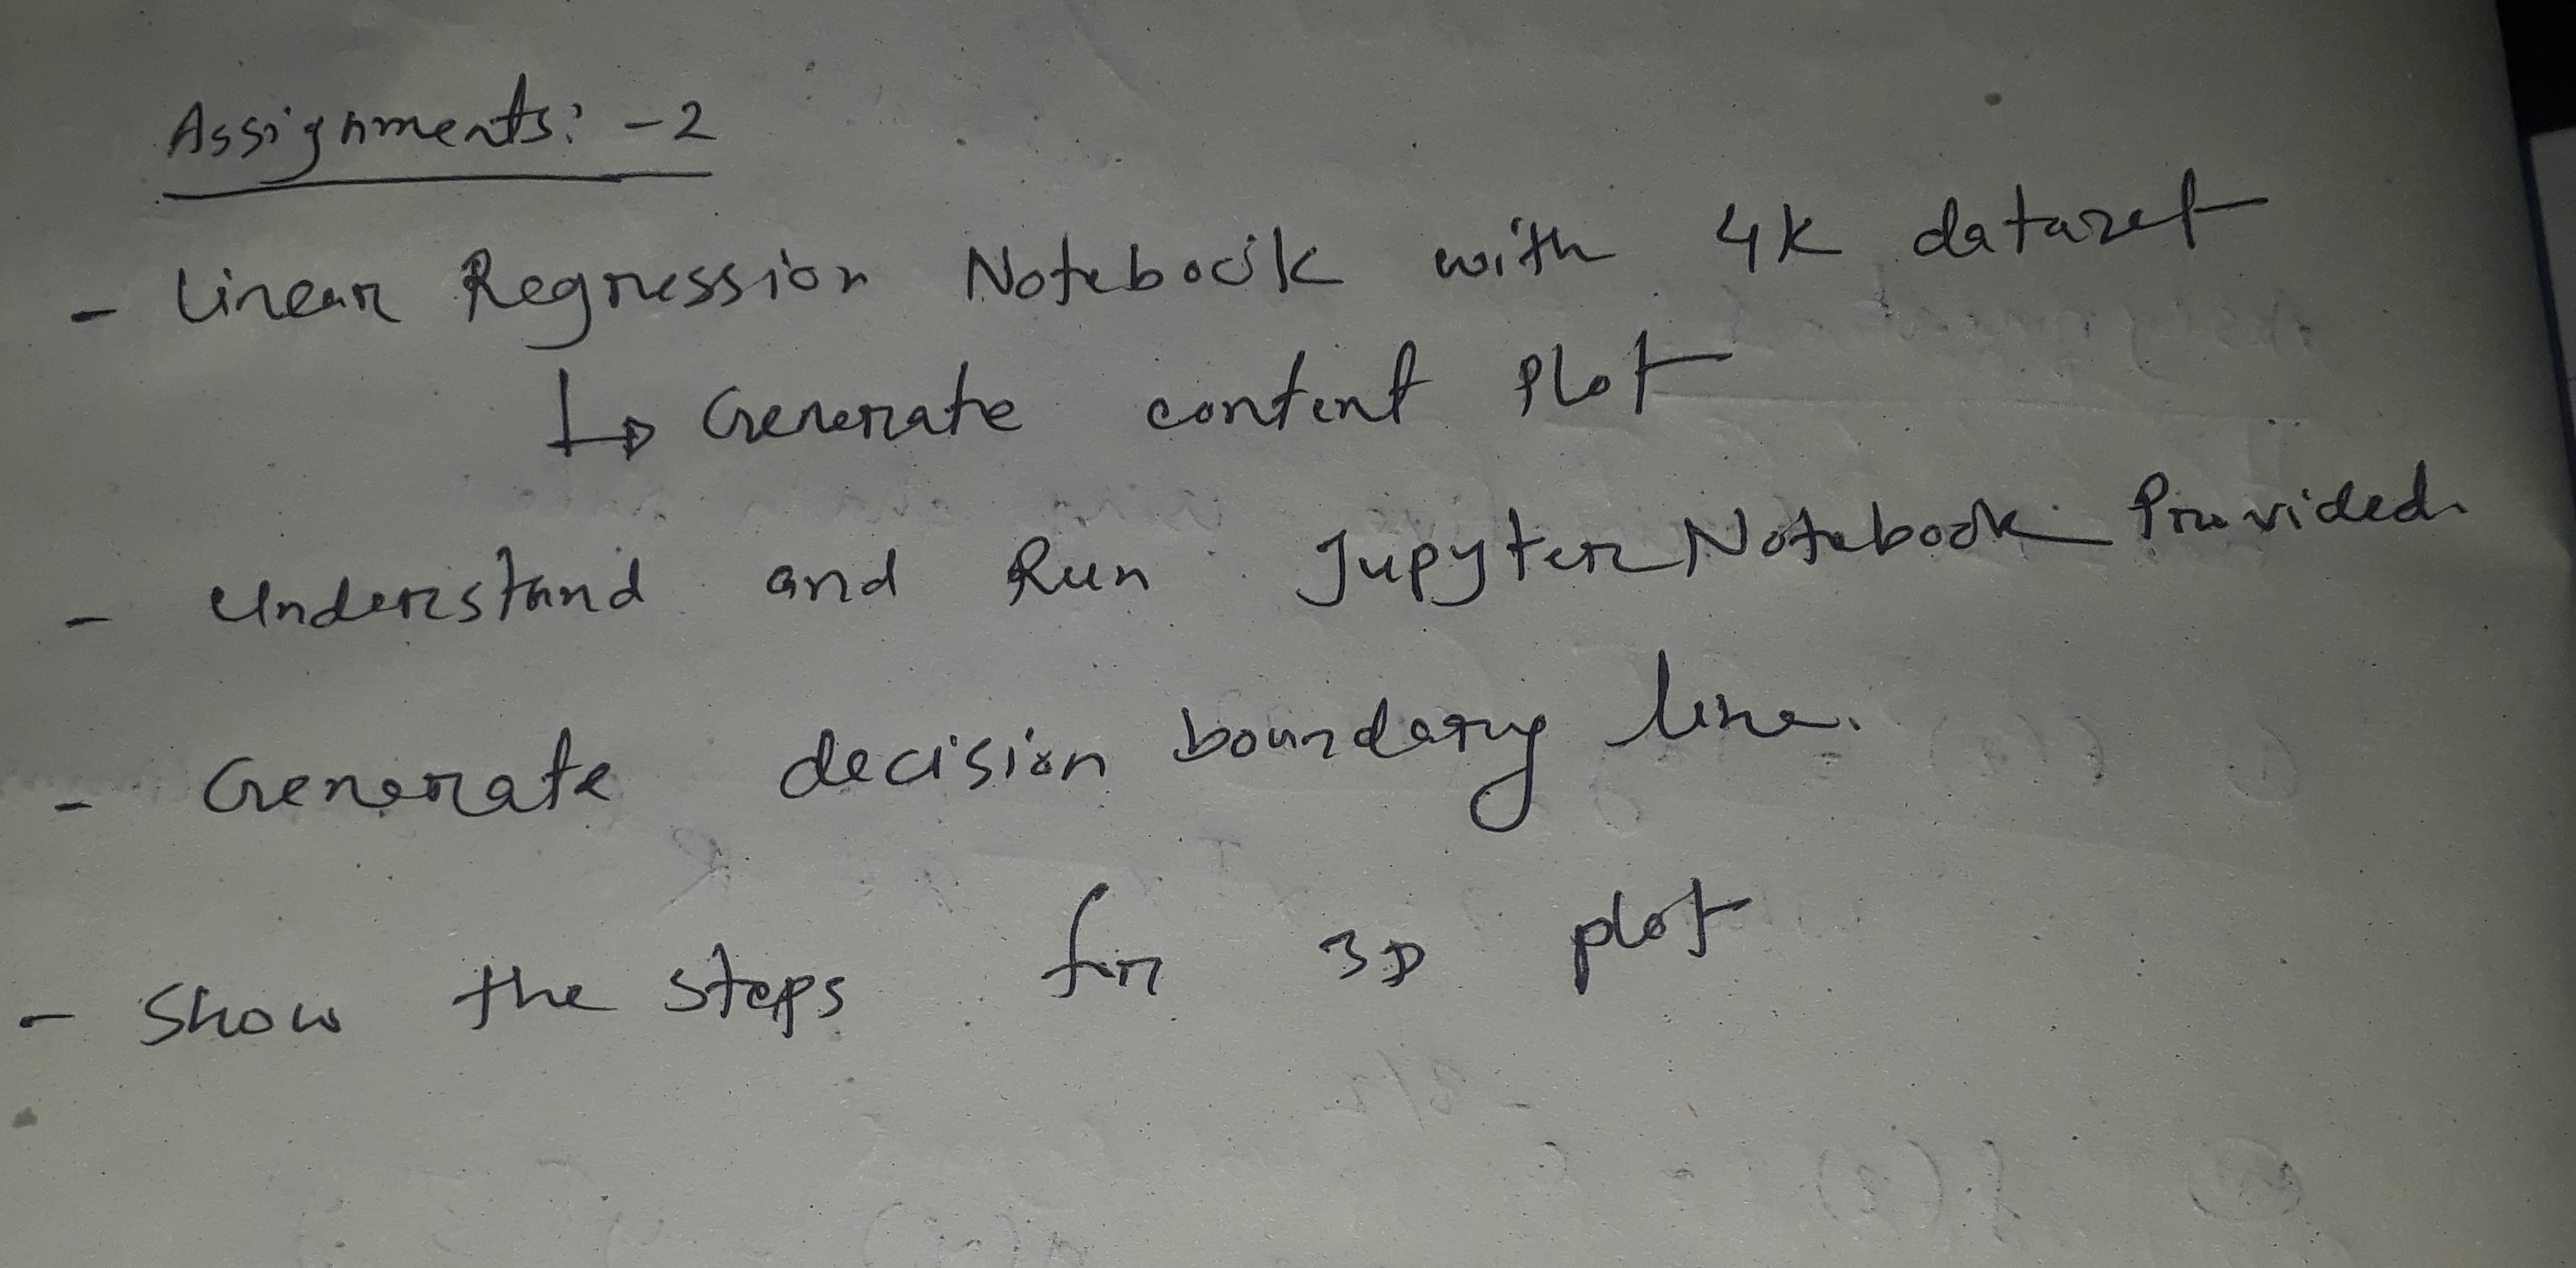 Assignments: - 2
- Linear Regression Notebook with 4K dataset
↳ Generate content Plot
- Understand and Run Jupyter Notebook Provided.
- Generate decision boundary line.
- Show the steps for 3D plot